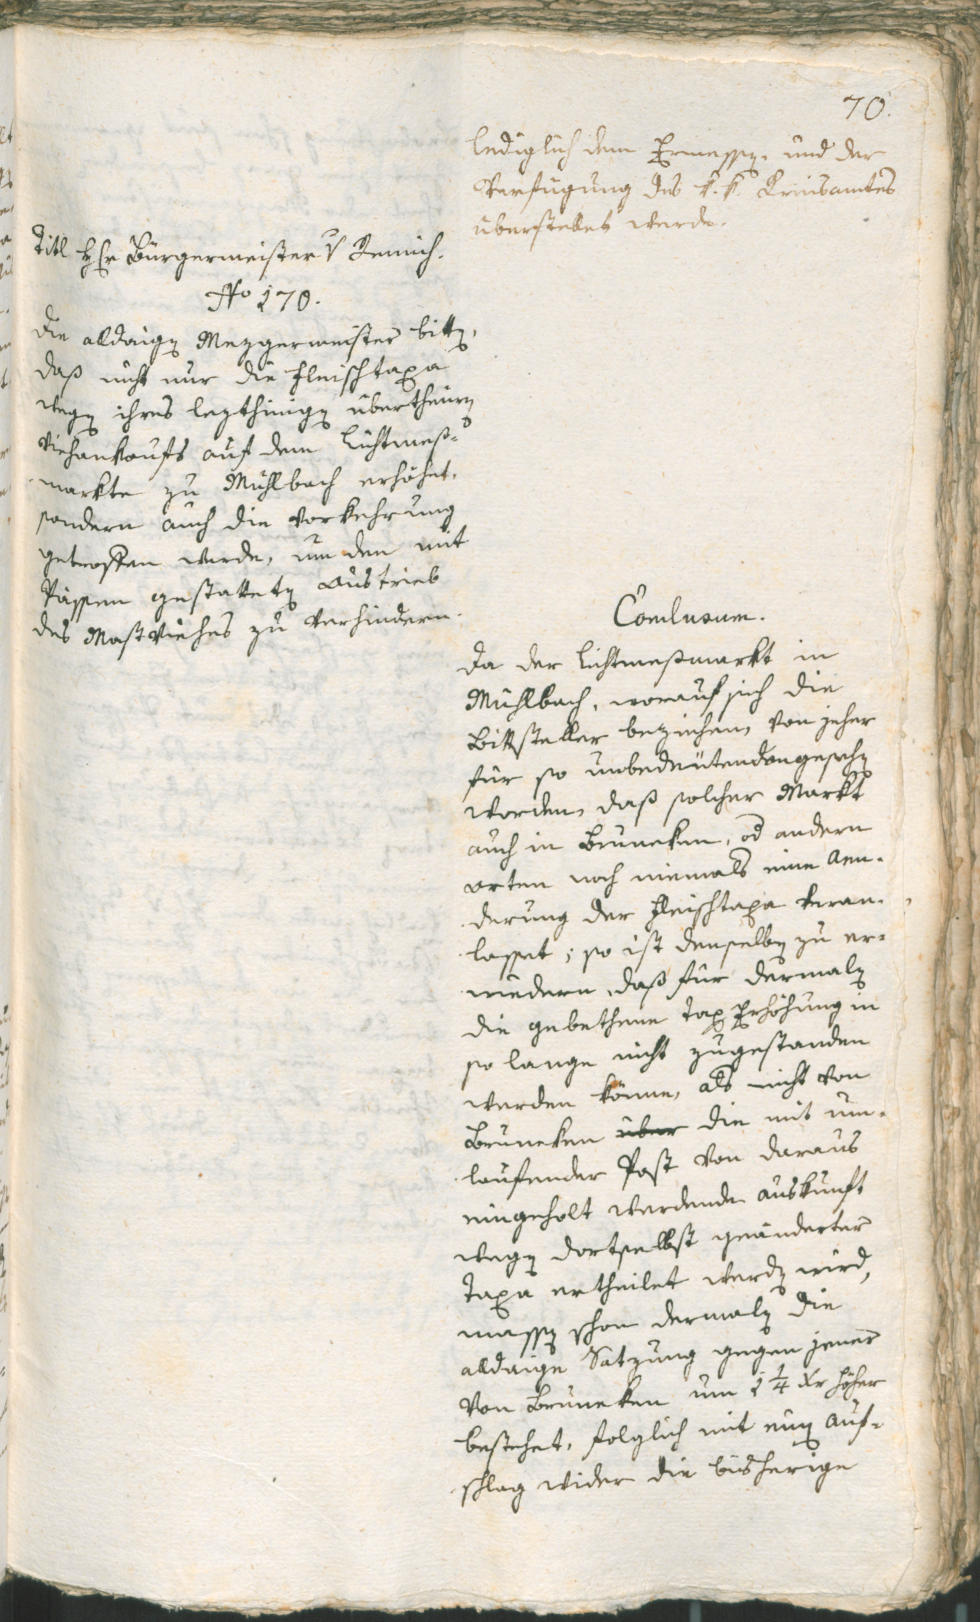 70.
lediglich dem Ermessen und der
Verfügung des k. k. Kreisamtes
überstellet werde.
Titl Hr Bürgermeister v Remich.
No 170.
Die alldaigen Mezgermeister bitten,
daß nicht nur die Fleischtaxa
wegen ihres lezthinigen übertheüren
Viehankaufs auf dem Lichtmeß-
markte zu Mühlbach erhöhet,
sondern auch die Vorkehrung
getroffen werde, um den mit
Pässen gestatteten Austrieb
des Mastviehes zu verhindern.
Conclusum.
Da der Lichtmeßmarkt in
Mühlbach, worauf sich die
Bittsteller beziehen, von jeher
für so unbedeütend angesehen
worden, daß solcher Markt
auch in Bruneken, od andern
Orten noch niemals eine Aen-
derung der Fleischtaxa veran-
lasset; so ist denselben zu er-
wiedern, daß für dermalen
die gebethene Tax Erhöhung in
so lange nicht zugestanden
werden könne, als nicht von
Bruneken über die mit um-
laufender Post von daraus
eingeholt werdende Auskunft
wegen dortselbst geänderter
Taxa ertheilet werden wird,
massen schon dermalen die
alldaige Satzung gegen jener
von Bruneken um 1 1/4 Xr höher
bestehet, folglich mit einen Auf-
schlag wider die bisherige